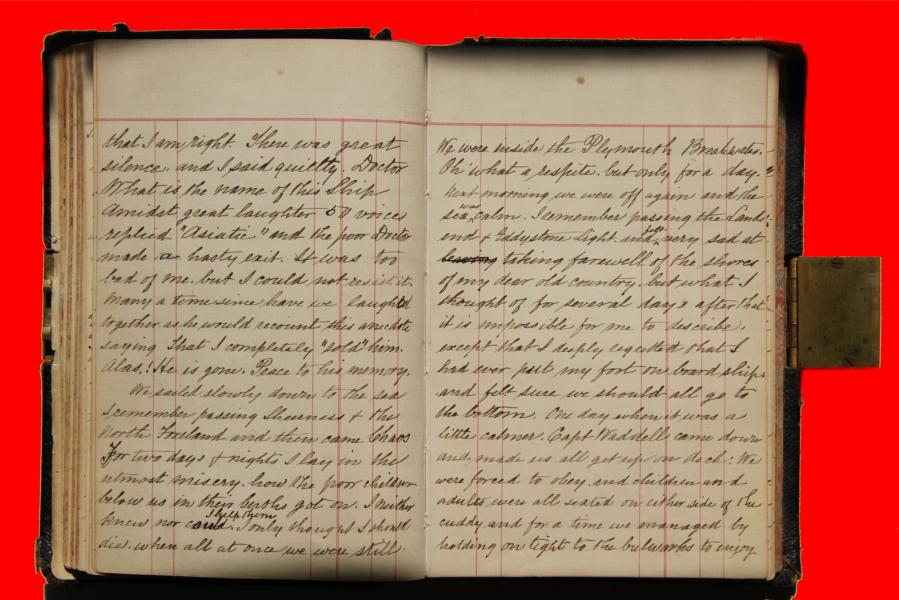 that I am right. There was great
silence. and I said quietly. Doctor
What is the name of this Ship
Amidst great laughter 50 voices
replied "Asiatic" and the poor Doctor
made a hasty exit. It was too
bad of me. but I could not resist it.
Many a time since have we laughed
together as he would recount this anecdote
saying That I completely "sold" him.
Alas! He is gone. Peace to his memory.
We sailed slowly down to the sea
I remember passing Sheerness & the
North Foreland and then came Chaos
For two days & nights I lay in the
utmost misery. how the poor children
below us in their berths got on. I neither
knew nor cared. I only thought I should
die. when all at once we were still.
We were inside the Plymouth Breakwater.
Oh' what a respite. but only for a day.
Next morning we were off again and the
sea was calm. I remember passing the Land's
end & Eddystone Light. and felt very sad at
leaving taking farewell of the shores
of my dear old country. but what I
thought of for several days after that
it is impossible for me to describe.
except that I deeply regretted that I
had ever put my foot on board ship.
and felt sure we should all go to
the bottom. One day when it was a
little calmer. Capt Waddell came down
and made us all get up on deck: We
were forced to obey. and children and
adults were all seated on either side of the
cuddy. and for a time we managed by
holding on tight to the bulwarks to enjoy